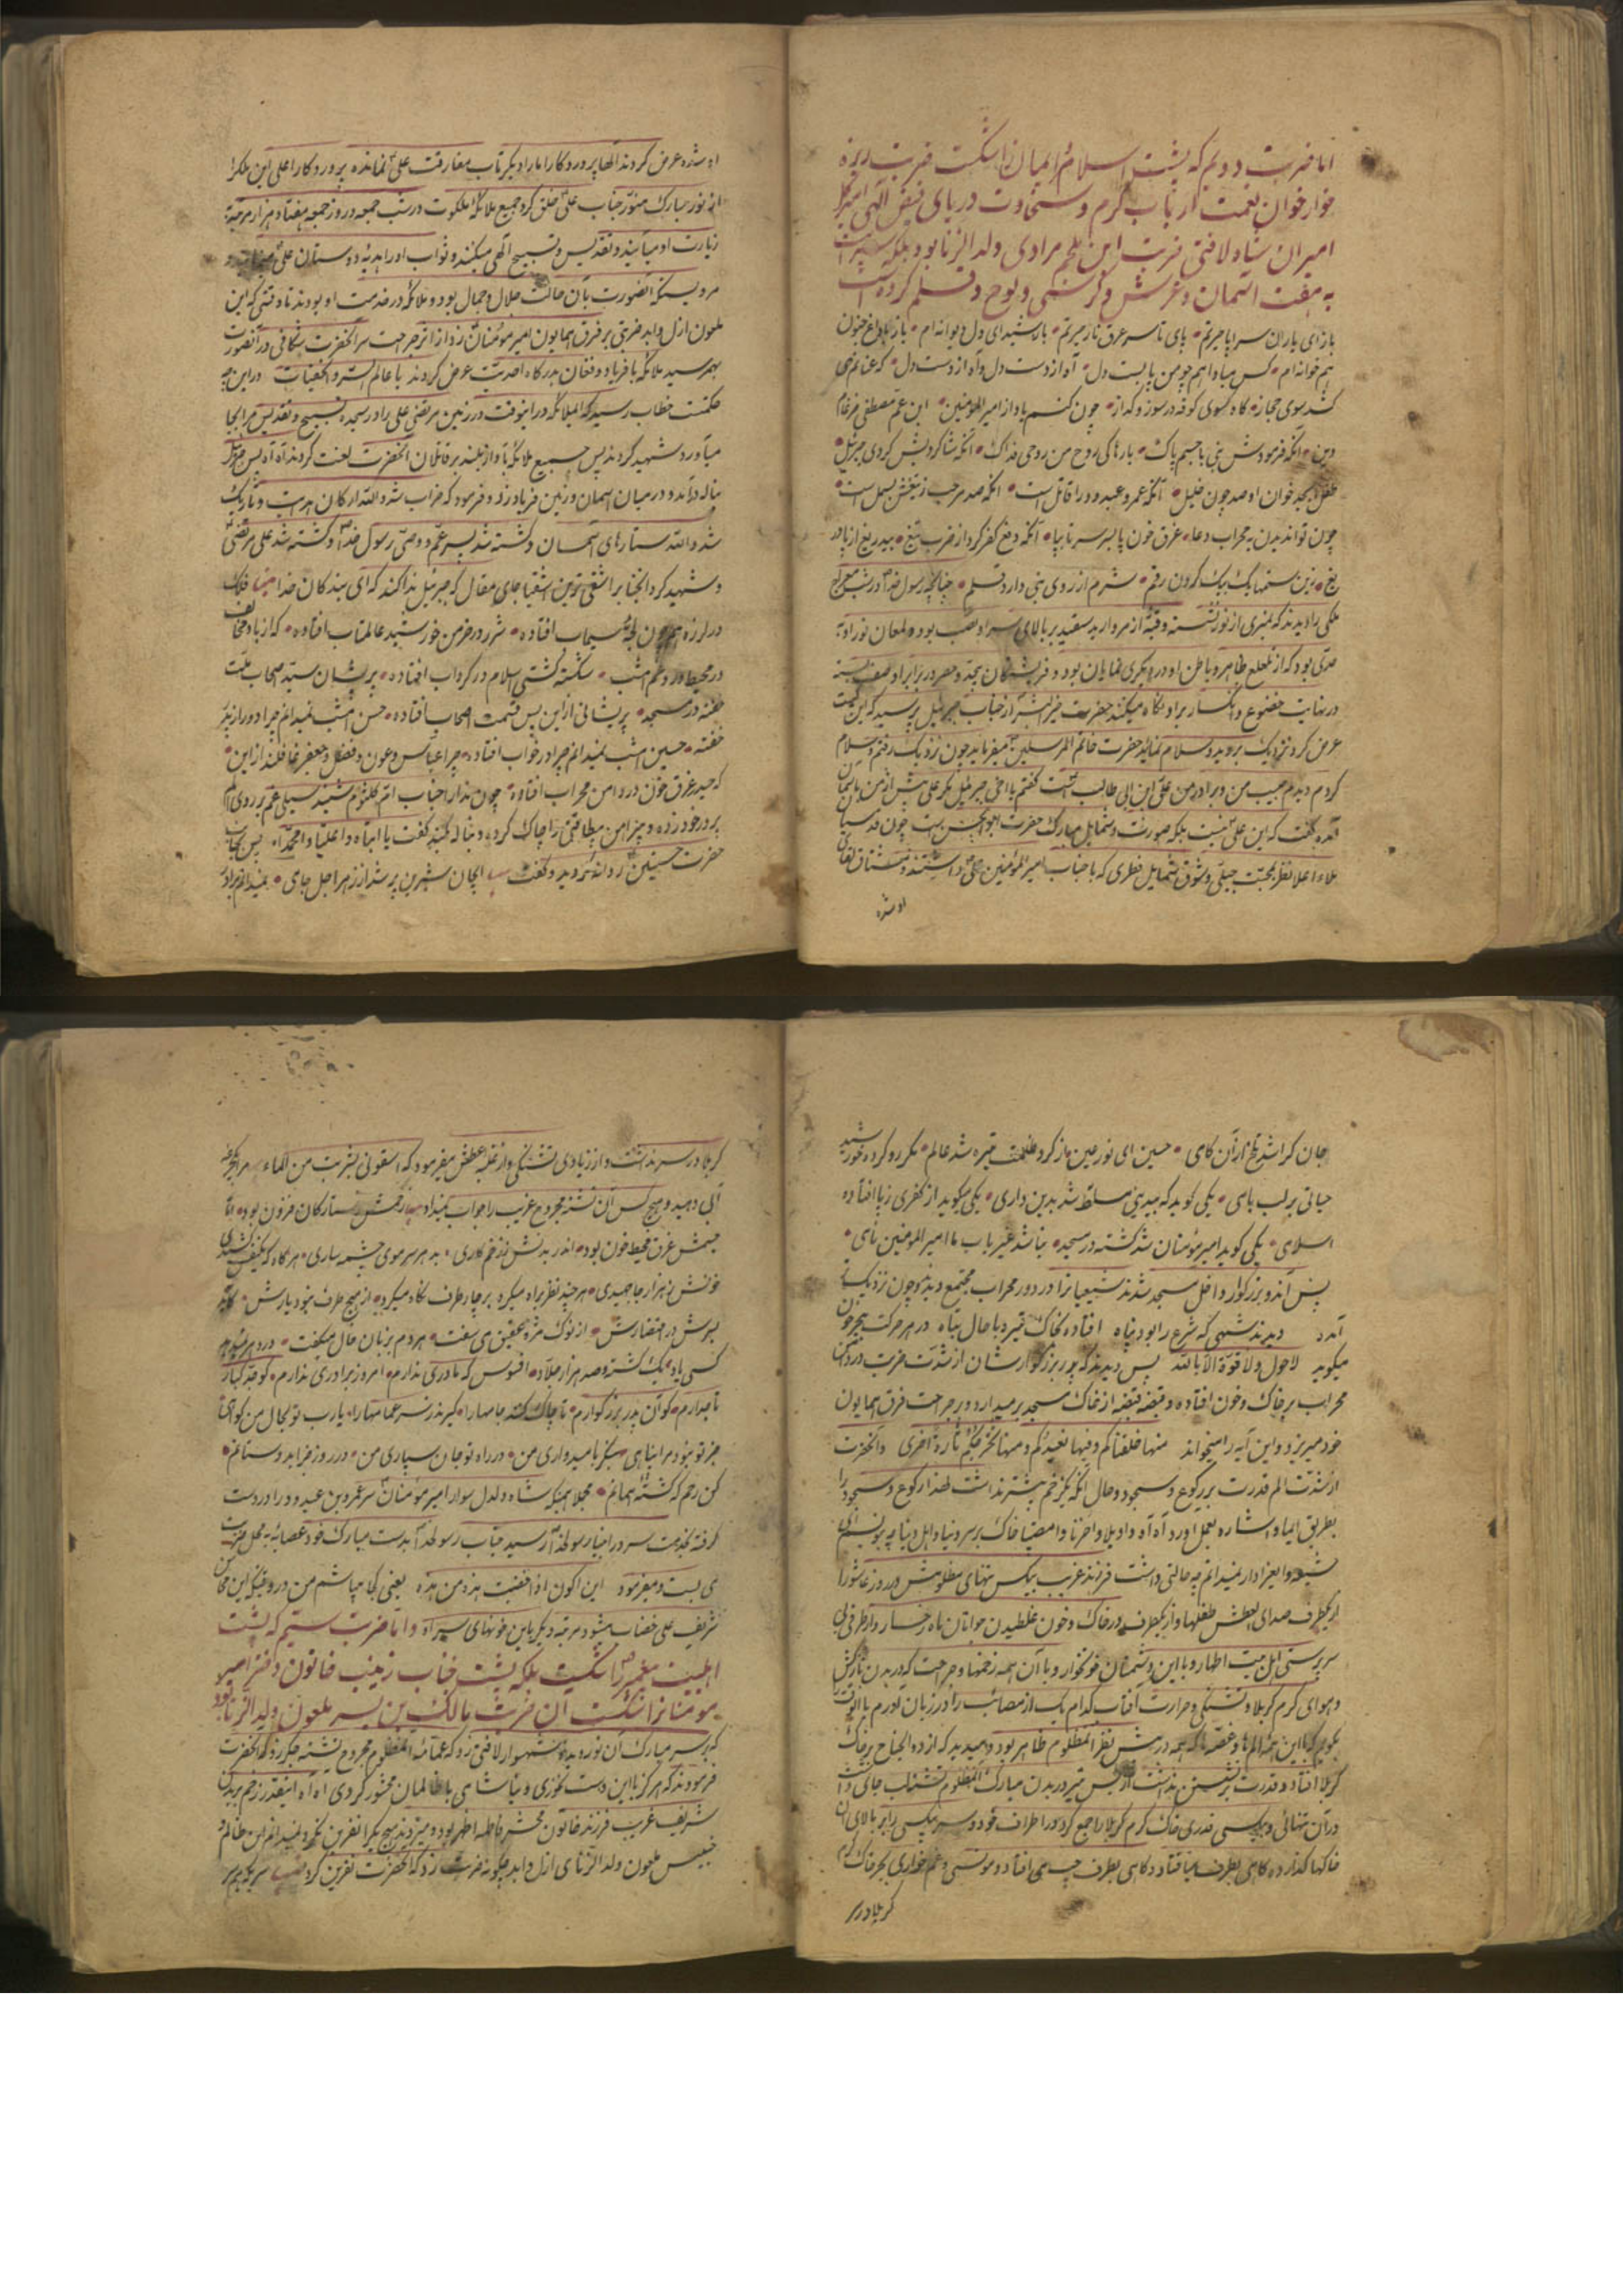 اما ضربت دویم که پشت اسلام و ایمان را شکست ضربت ریزه
خوار خوان نعمت ارباب کرم و سخاوت دریای فیض الهی
امیران شاه لافتی ضربت ابن ملجم مرادی ولد الزنا بود بلکه
به هفت آسمان و عرش و کرسی و لوح و قلم کرده است
باز ای یاران سراپا حیرتم • پای تا سر غرق نار حیرتم • باز شیدای دل دیوانه ام • باز با داغ جنون
هم خوانه ام • کس مبادا همچو من پا بست دل • آه از دست دل و آه از دست دل • که غنانم می
کشد سوی حجاز • گاه سوی کوفه در سوز و گداز • چون کنم یاد از امیر المؤمنین • ابن عم مصطفی ضرغام
دین • آنکه فرمودش نبی با جسم پاک • بارها کی روح من روحی فداک • آنکه شاگردیش کردی جبرئیل •
طفل ابجد خوان او صد چون خلیل • آنکه عمرو عبدود را قاتل است • آنکه صد مرحب ز تیغش بسمل است •
چون توانیدن به محراب دعا • غرق خون پا بسر سر تا بپا • آنکه دفع کفر کرد از ضرب تیغ • بیدریغ از پا
تیغ • زین ستمها یک بیک کردن رقم • شرم از روی نبی دارد قلم • چنانچه رسول خدا در شب معراج
ملکی را دیدند که بمنبری از نور نشسته و قبه از مروارید سفید بر بالای سر او نصب بود و لمعان نور او به
حدی بود که از شعشع ظاهر و باطن او در دیگری نمایان بود و فرشتگان بیحد و حصر در برابر او صف بسته
در نهایت خضوع و انکسار بر او نگاه میکنند حضرت خیر البشر از جناب جبرئیل پرسید که این کیست
عرض کرد نزدیک بروید و سلام نمائید حضرت خاتم المرسلین میفرماید چون نزدیک رفتم و سلام
کردم دیدم حبیب من و برادر من علی ابن ابی طالب است گفتم یا اخی جبرئیل مگر علی پیش از من باسمان
آمده گفت که این علی نیست بلکه صورت و شمایل مبارک حضرت ابو الحسن است چون قدسیان
ملاء اعلا نظر بمحبت جبلی و شوق شمایل فطری که با جناب امیر المؤمنین علی داشتند و مشتاق لقای
او شده
او شده عرض کردند الها پروردگارا ما را دیگر تاب مفارقت علی نمانده پروردگار اعلی این ملک را
از نور مبارک منور جناب علی خلق کرد جمیع ملائکه ملکوت در شب جمعه و روز جمعه هفتاد هزار مرتبه
زیارت او میآیند و تقدیس و تسبیح الهی میکنند و ثواب او را هدیه دوستان علی
مرویست که آنصورت بآن حالت جلال و جمال بود و ملائکه در خدمت او بودند تا وقتی که این
ملعون ازل و ابد ضربتی بر فرق همایون امیر مؤمنان زد از اثر جراحت سر آنحضرت شکافی در آنصورت
بهمرسید ملائکه با فریاد و فغان بدرگاه احدیت عرض کردند یا عالم السر و الخفیات در این چه
حکمتست خطاب رسید که ای ملائکه در اینوقت در زمین مرتضی علی را در سجده تسبیح و تقدیس مرا بجا
میآورد شهید کردند پس جمیع ملائکه بآواز بلند بر قاتلان آنحضرت لعنت کردند آه آه پس جبرئیل
بناله درآمد و در میان آسمان و زمین فریاد زد و فرمود که خراب شد والله ارکان هدایت و تاریک
شد والله ستارهای آسمان و کشته شد پسر عم و وصی رسول خدا و کشته شد علی مرتضی
و شهید کرد آنجناب را شقی ترین اشقیا جای مقال که جبرئیل ندا کند که ای بندگان خدا فلک
در لرزه همچون لجهٔ سیماب افتاده • شرر در خرمن خورشید عالمتاب افتاده • که از باد مخالف
در محیط درد و غم امشب • شکسته کشتی اسلام در گرداب افتاده • پریشان سید اصحاب ملت
خفته در مسجد • پریشانی ازاین پس قسمت اصحاب افتاده • حسن امشب نمیدانم چرا دور از پدر
خفته • حسین امشب نمیدانم چرا در خواب افتاده • چرا عباس و عون و فضل و جعفر غافلند از این •
که حیدر غرق خون در دامن محراب افتاده • چون ندا را جناب ام کلثوم شنید سیلی غم بر روی
بر در خود زده و پیراهن بیطاقتی را چاک کرده و بناله گفت یا ابتاه وا علیا وا محمداه پس بجانب
حضرت حسنین روانه گردید و گفت ایجان شیرین پر شد از زهر اجل جای • نمیدانم برادر
جان کرا شد تلخ از آن کامی • حسین ای نور عین ما ز گرد ظلمت تیره شد عالم • مگر رو کرده خورشید
حیاتی بر لب بامی • یکی گوید که بیدینی مسلط شد بدین داری • یکی میگوید از کفری ز پا افتاده
اسلامی • یکی گوید امیر مؤمنان شد کشته در مسجد • نباشد غیر باب ما امیر المؤمنین نامی •
پس آندو بزرگوار داخل مسجد شدند شیعیانرا در دور محراب مجتمع دیدند چون نزدیک
آمدند دیدند شهی که شرع را بود پناه افتاده بخاک تیره با حال تباه در هر حرکت
میگوید لاحول ولا قوة الا بالله پس دیدند که پدر بزرگوارشان از شدت ضربت در دامن
محراب بر خاک و خون افتاده و قبضه قبضه از خاک مسجد برمیدارد و بر جراحت فرق همایون
خود میریزد و این آیه را میخواند منها خلقناکم و فیها نعیدکم و منها نخرجکم تارة اخری و آنحضرت
از شدت الم قدرت بر رکوع و سجود و حال آنکه یک زخم بیشتر نداشت لهذا رکوع و سجود را
بطریق ایما و اشاره بعمل آورد آه آه واویلا واحزنا وا مصیبتا خاک بر سر دنیا و اهل دنیا
شیعه و ایعزادار نمیدانم چه حالتی داشت فرزند غریب بیکس تنهای مظلومش در روز عاشورا
از یکطرف صدای العطش طفلها و از یکطرف در خاک و خون غلطیدن جوانان ماه رخسار و از طرفی بی
سرپرستی اهل بیت اطهار و با این دشمنان خونخوار و با آن همه زخمها و جراحت که در بدن نازکش
و هوای گرم کربلا و تشنگی و حرارت آفتاب کدام یک از مصائب را در زبان آورم
بگویم که با این همه الم ها و غصه ها که همه در پیش نظر آنمظلوم ظاهر بود و میدید که از ذوالجناح بر خاک
کربلا افتاد و قدرت بر نشستن نداشت از بس تیر در بدن مبارک آنمظلوم تشنه لب جای داشت
در آن تنهائی و بیکسی قدری خاک گرم کربلا را جمع کرد در اطراف خود و سر بیکسی را بر بالای آن
خاکها گذارده گاهی بطرف میافتاد و گاهی بطرف چپ می افتاد و مونسی و غم خواری بجز خاک گرم
کربلا در
کربلا در سر نداشت و از زیادی تشنگی و از غلبه عطش میفرمود که اسقونی بشربت من الماء مرا جرعه
آبی دهید و هیچ کس آن تشنه مجروح غریب را جواب نمیداد زخمش ز ستارگان فزون بود • اما
جسمش غرق محیط خون بود • اندر بدنش ز زخم کاری • بد هر سر موی چشمه ساری • هر گاه که یکنفس کشیدی
خونش ز هزار جا جهیدی • هر چند نظر براه میکرد بر چار طرف نگاه میکرد • از هیچ طرف نبود یارش •
بسرش در احتضارش • از نوک مژه عقیق می سفت • هر دم بزبان حال میگفت •
کسی یاد • یک کشته و صد هزار جلاد • افسوس که مادری ندارم • امروز برادری ندارم • کو جد کبار
تاجدارم • کو آن پدر بزرگوارم • تا چاک کنند جامها را • گیرند ز سر عمامها را • یارب تو بحال من گواهی
جز تو نبود مرا پناهی بنگر بامیدواری من • در راه تو جان سپاری من • در روز جزا بدوستانم •
کن رحم که کشتهٔ همانم • مجملا همینکه شاه دلدل سوار امیر مؤمنان سر عمرو بن عبدود را در دست
گرفته بخدمت سرور اخیار رسولخدا رسید جناب رسولخدا بدست مبارک خود عصابه به محل ضربت
می بست و میفرمود این اکون اذا خضبت هذه من هذه یعنی کجا میباشم من در وقتیکه این محاسن
شریف علی خضاب میشود مرتبه دیگر باین خونهای سر آه و اما ضربت سیم که پشت
اهلبیت پیغمبر را شکست بلکه پشت جناب زینب خاتون دختر امیر
مومنانرا شکست آن ضربت مالک بن یسر ملعون ولد الزنا بود
که بر سر مبارک آن نور دیده شهسوار لافتی زد که عمامه آنمظلوم مجروح تشنه جگر زد که آنحضرت
فرمودند که هرگز با این دست نخوری و نیاشامی با ظالمان محشور گردی آه آه اینقدر زخم بر بدن
شریف غریب فرزند خاتون محشر فاطمه اطهر بود و میزدند هیچ یکرا نفرین نکرد نمیدانم این ظالم
خبیس ملعون ولد الزنای ازل و ابد چگونه ضربت زد که آنحضرت نفرین کرد